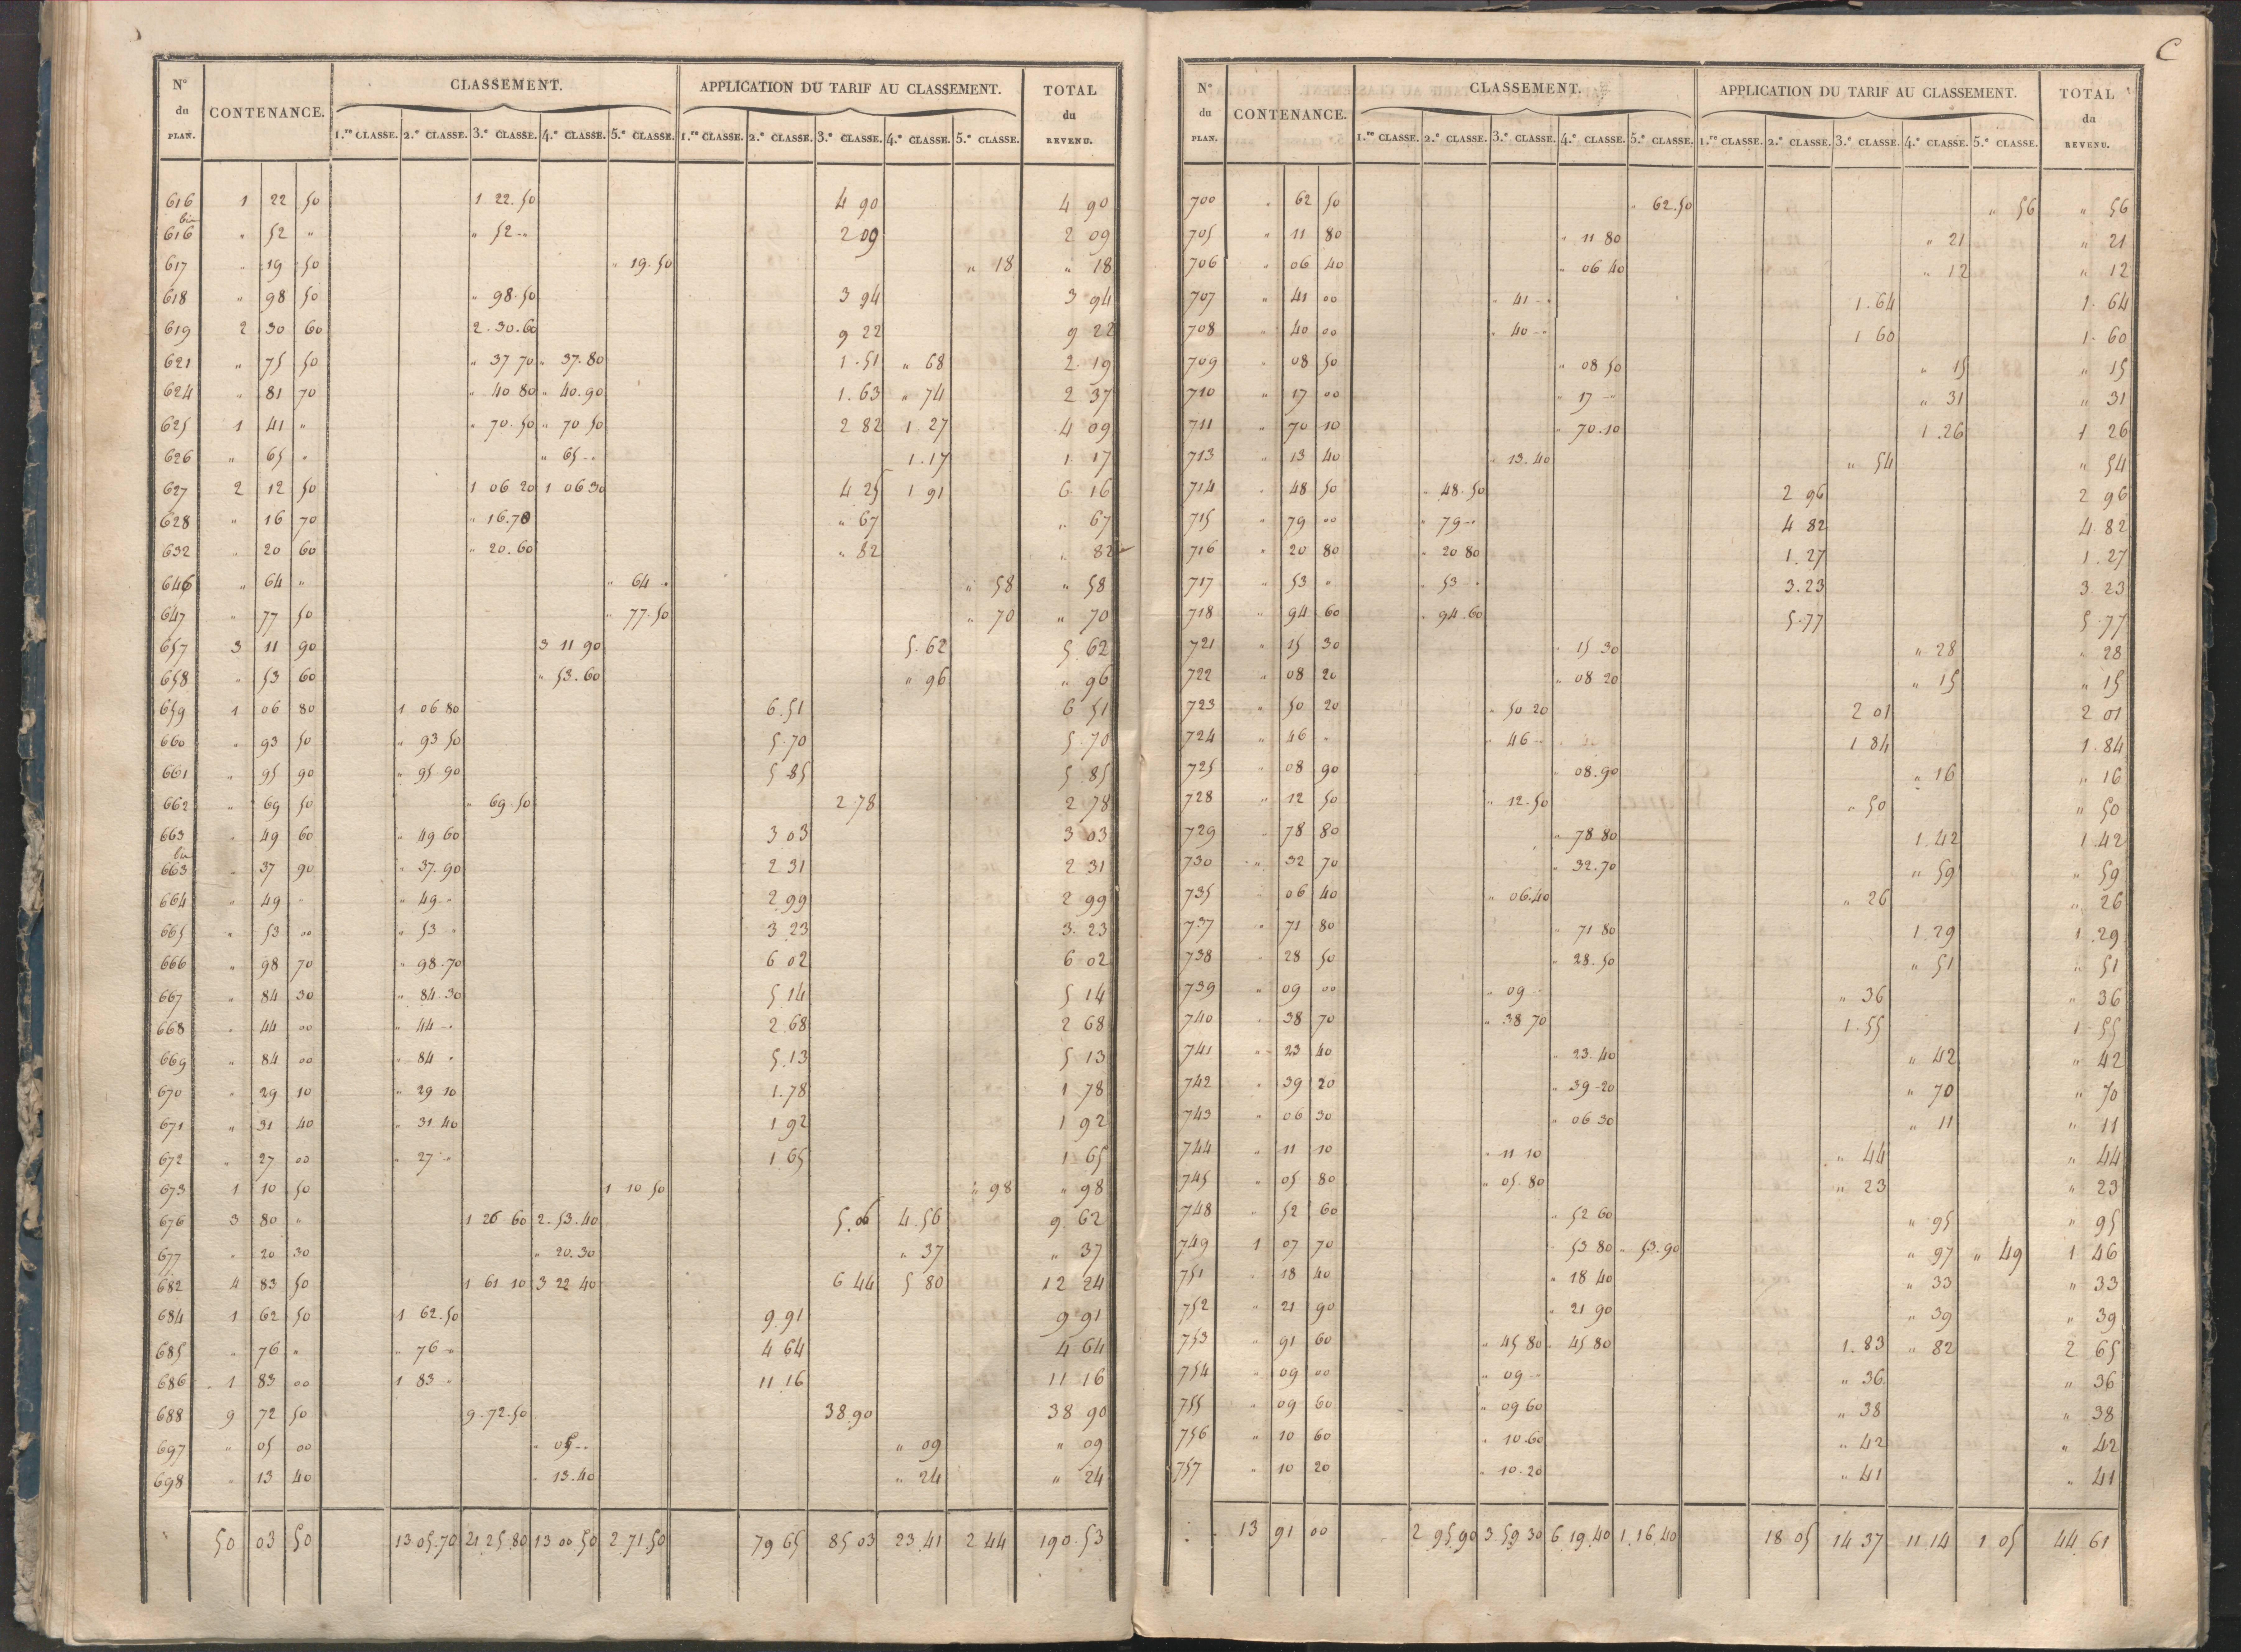 N° du PLAN. CONTENANCE. CLASSEMENT. APPLICATION DU TARIF AU CLASSEMENT. TOTAL du REVENU.
1.re CLASSE. 2.e CLASSE. 3.e CLASSE. 4.e CLASSE. 5.e CLASSE. 1.re CLASSE. 2.e CLASSE. 3.e CLASSE. 4.e CLASSE. 5.e CLASSE.
616 1 22 50 1 22.50 4 90 4 90
616 bis " 52 " " 52 -" 2 09 2 09
617 " 19 50 " 19.50 " 18 " 18
618 " 98 50 " 98.50 3 94 3 94
619 2 30 60 2.30.60 9 22 9 22
621 " 75 50 " 37 70 " 37.80 1.51 " 68 2.19
624 " 81 70 " 40 80 " 40.90 1.63 " 74 2 37
625 1 41 " " 70.50 " 70 50 2 82 1 27 4 09
626 " 65 " " 65 -" 1.17 1.17
627 2 12 50 1 06 20 1 06 30 4 25 1 91 6 16
628 " 16 70 " 16.70 " 67 " 67
632 " 20 60 " 20.60 " 82 " 82
646 " 64 " " 64 -" " 58 " 58
647 " 77 50 " 77.50 " 70 " 70
657 3 11 90 3 11 90 5.62 5.62
658 " 53 60 " 53.60 " 96 " 96
659 1 06 80 1 06 80 6.51 6 51
660 " 93 50 " 93 50 5.70 5.70
661 " 95 90 " 95-90 5 85 5.85
662 " 69 50 " 69.50 2.78 2 78
663 " 49 60 " 49 60 3 03 3 03
663 bis " 37 90 " 37.90 2 31 2 31
664 " 49 " " 49 -" 2 99 2 99
665 " 53 00 " 53 -" 3 23 3.23
666 " 98 70 " 98.70 6 02 6 02
667 " 84 30 " 84.30 5 14 5 14
668 " 44 00 " 44 -" 2.68 2 68
669 " 84 00 " 84 " 5.13 5 13
670 " 29 10 " 29 10 1.78 1 78
671 " 31 40 " 31 40 1 92 1 92
672 " 27 00 " 27 -" 1.65 1 65
673 1 10 50 1 10 50 " 98 " 98
676 3 80 " 1 26 60 2.53.40 5.06 4.56 9.62
677 " 20 30 " 20.30 " 37 " 37
682 4 83 50 1 61 10 3 22 40 6 44 5 80 12 24
684 1 62 50 1 62.50 9.91 9 91
685 " 76 " " 76 -" 4 64 4 64
686 1 83 00 1 83 -" 11 16 11 16
688 9 72 50 9.72.50 38.90 38 90
697 " 05 00 " 05 -" " 09 " 09
698 " 13 40 " 13.40 " 24 " 24
50 03 50 13 05.70 21 25 80 13 00 50 2.71.50 79 65 85 03 23.41 2 44 190.53
C
N° du PLAN. CONTENANCE. CLASSEMENT. APPLICATION DU TARIF AU CLASSEMENT. TOTAL du REVENU.
1.re CLASSE. 2.e CLASSE. 3.e CLASSE. 4.e CLASSE. 5.e CLASSE. 1.re CLASSE. 2.e CLASSE. 3.e CLASSE. 4.e CLASSE. 5.e CLASSE.
700 " 62 50 " 62.50 " 56 " 56
705 " 11 80 " 11 80 " 21 " 21
706 " 06 40 " 06 40 " 12 " 12
707 " 41 00 " 41 -" 1.64 1.64
708 " 40 00 " 40 -" 1 60 1.60
709 " 08 50 " 08 50 " 15 " 15
710 " 17 00 " 17 -" " 31 " 31
711 " 70 10 " 70.10 1.26 1 26
713 " 13 40 " 13.40 " 54 " 54
714 " 48 50 " 48.50 2 96 2 96
715 " 79 00 " 79 -" 4 82 4.82
716 " 20 80 " 20 80 1.27 1.27
717 " 53 " " 53 -" 3.23 3 23
718 " 94 60 " 94.60 5.77 5.77
721 " 15 30 " 15 30 " 28 " 28
722 " 08 20 " 08 20 " 15 " 15
723 " 50 20 " 50 20 2 01 2 01
724 " 46 " " 46 -" 1 84 1.84
725 " 08 90 " 08.90 " 16 " 16
728 " 12 50 " 12.50 " 50 " 50
729 " 78 80 " 78 80 1.42 1.42
730 " 32 70 " 32.70 " 59 " 59
735 " 06 40 " 06.40 " 26 " 26
737 " 71 80 " 71 80 1.29 1.29
738 " 28 50 " 28.50 " 51 " 51
739 " 09 00 " 09 -" " 36 " 36
740 " 38 70 " 38 70 1.55 1.55
741 " 23 40 " 23.40 " 42 " 42
742 " 39 20 " 39-20 " 70 " 70
743 " 06 30 " 06 30 " 11 " 11
744 " 11 10 " 11 10 " 44 " 44
745 " 05 80 " 05.80 " 23 " 23
748 " 52 60 " 52 60 " 95 " 95
749 1 07 70 " 53 80 " 53.90 " 97 " 49 1 46
751 " 18 40 " 18 40 " 33 " 33
752 " 21 90 " 21 90 " 39 " 39
753 " 91 60 " 45 80 " 45 80 1.83 " 82 2 65
754 " 09 00 " 09 -" " 36 " 36
755 " 09 60 " 09 60 " 38 " 38
756 " 10 60 " 10.60 " 42 " 42
757 " 10 20 " 10.20 " 41 " 41
13 91 00 2 95.90 3.59 30 6.19.40 1.16.40 18 05 14 37 11.14 1 05 44.61